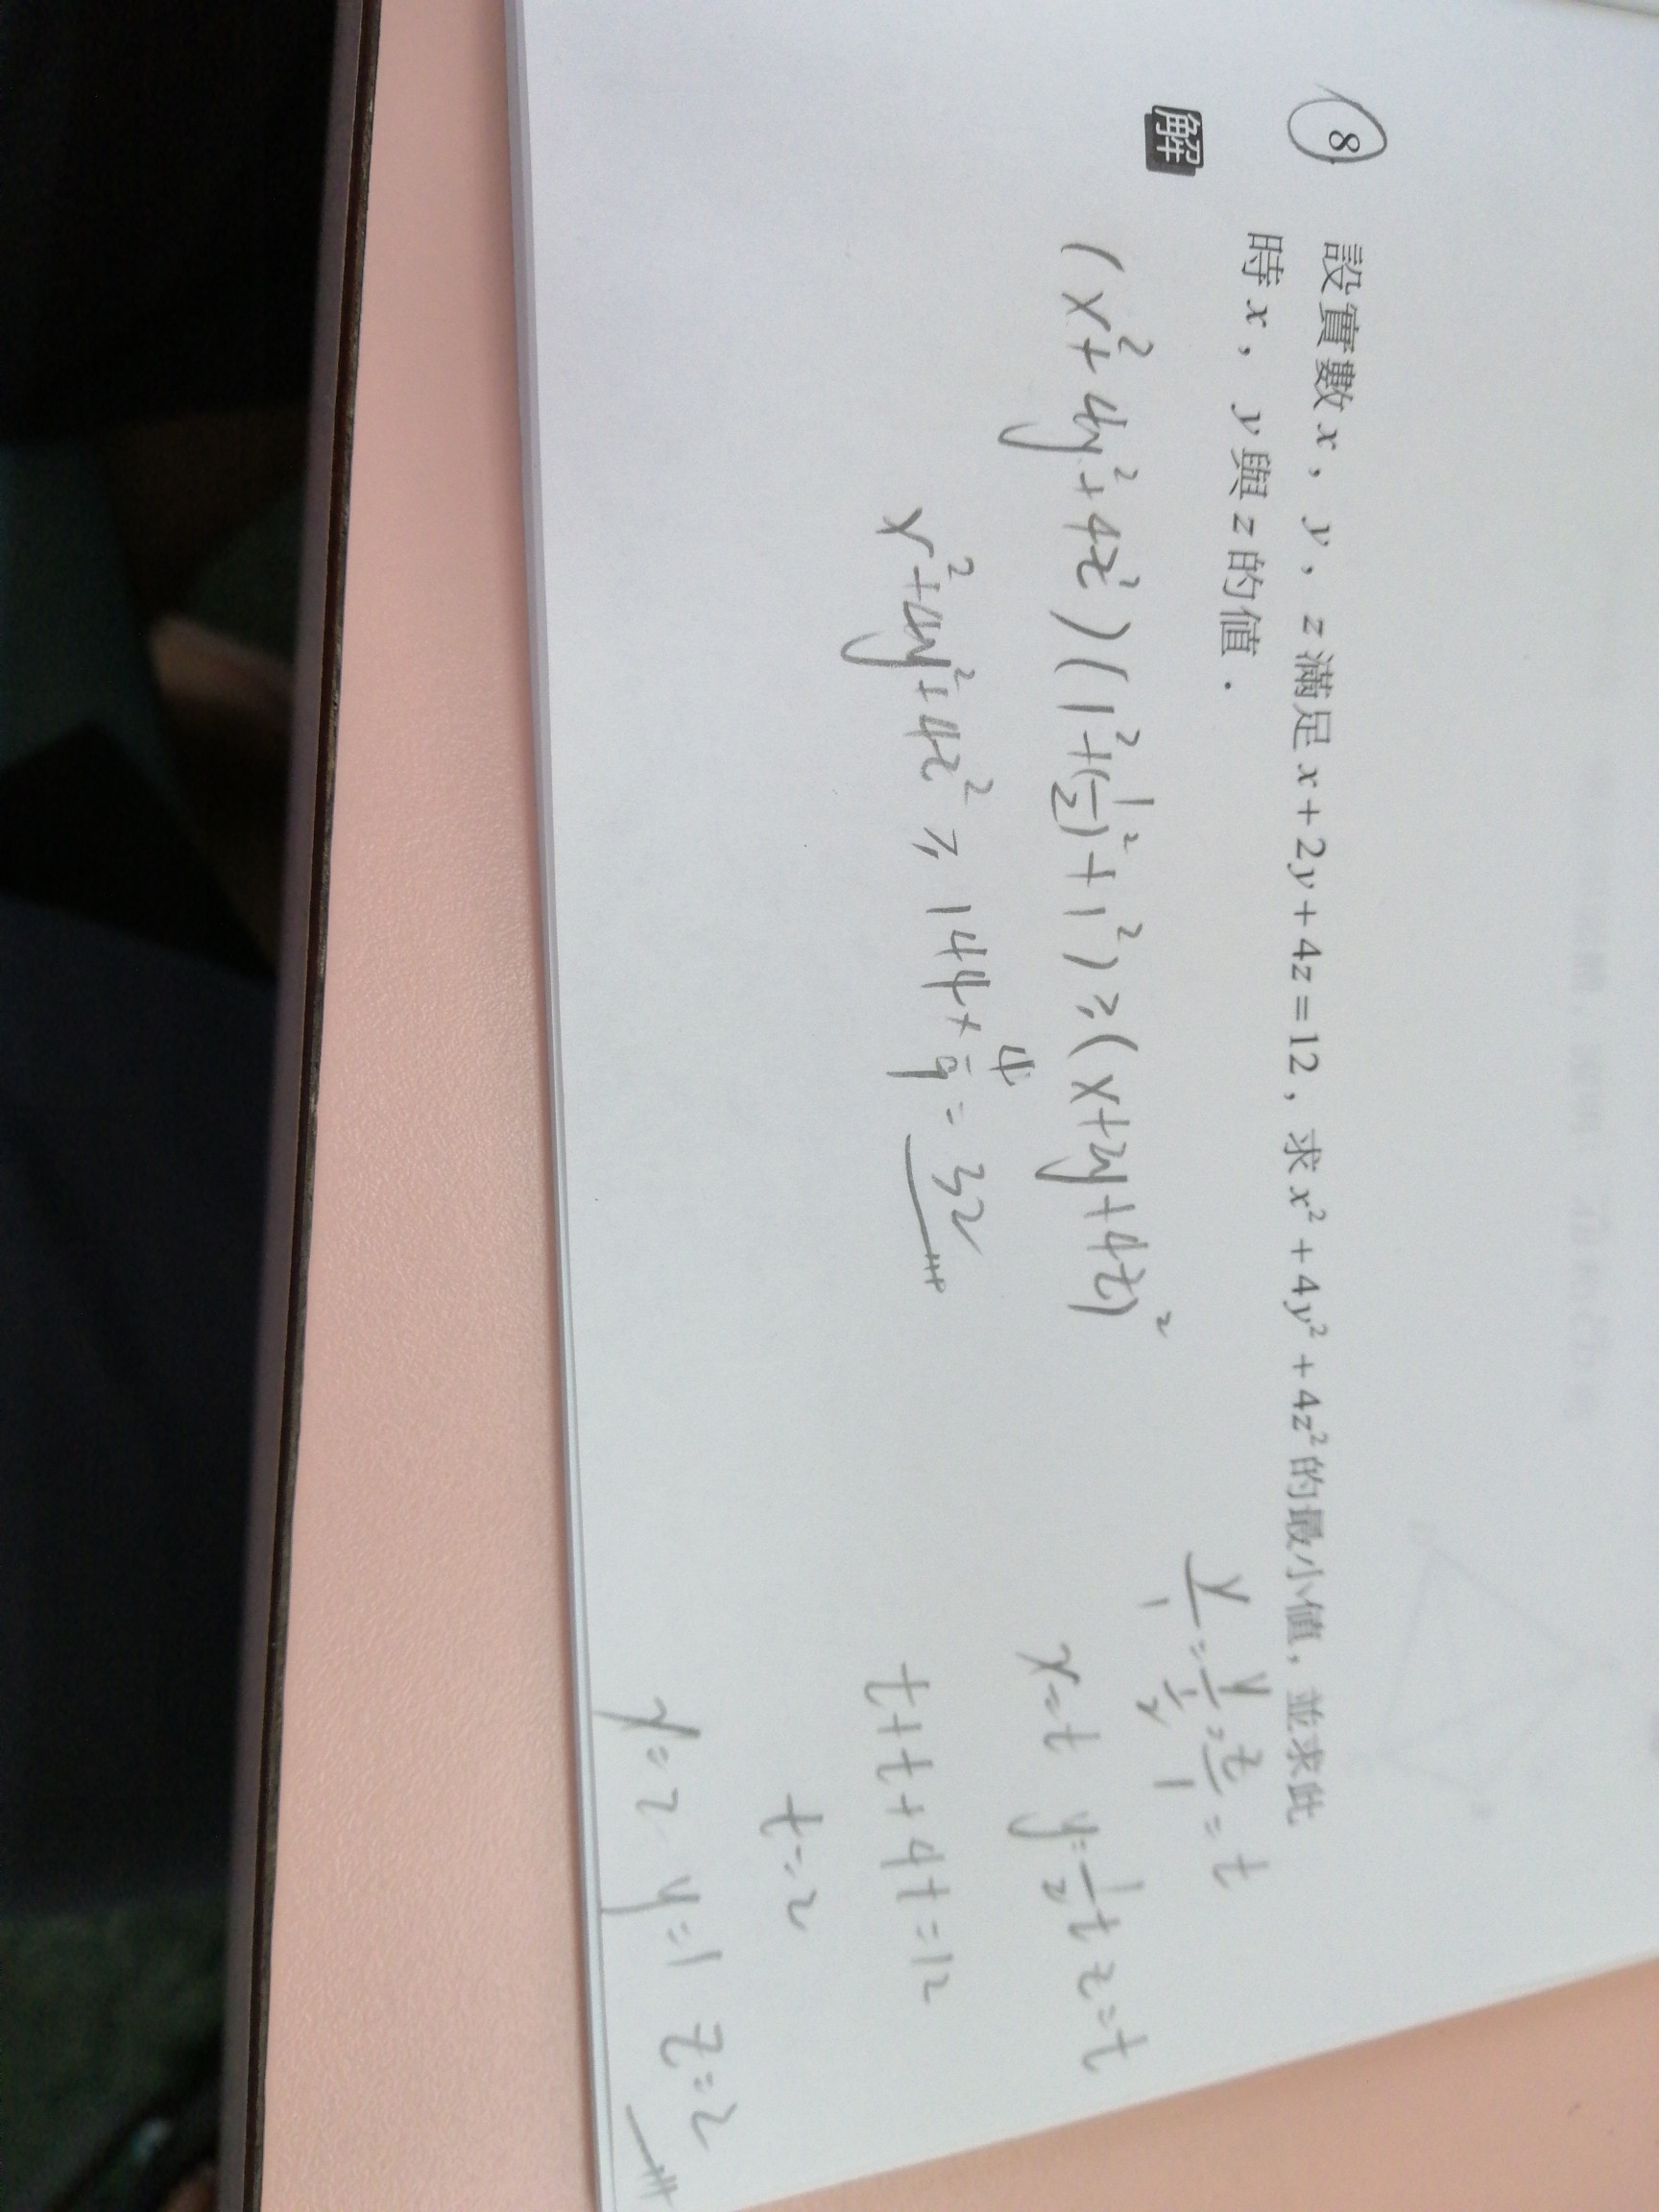 8. 設實數 x，y，z 滿足 x + 2y + 4z = 12，求 x² + 4y² + 4z² 的最小值，並求此
時 x，y 與 z 的值．
解
(x² + 4y² + 4z²)(1² + (1/2)² + 1²) ≥ (x + 2y + 4z)²
x² + 4y² + 4z² ≥ 144 × 4/9 = 32
x/1 = y/(1/2) = z/1 = t
x = t y = 1/2 t z = t
t + t + 4t = 12
t = 2
x = 2 y = 1 z = 2